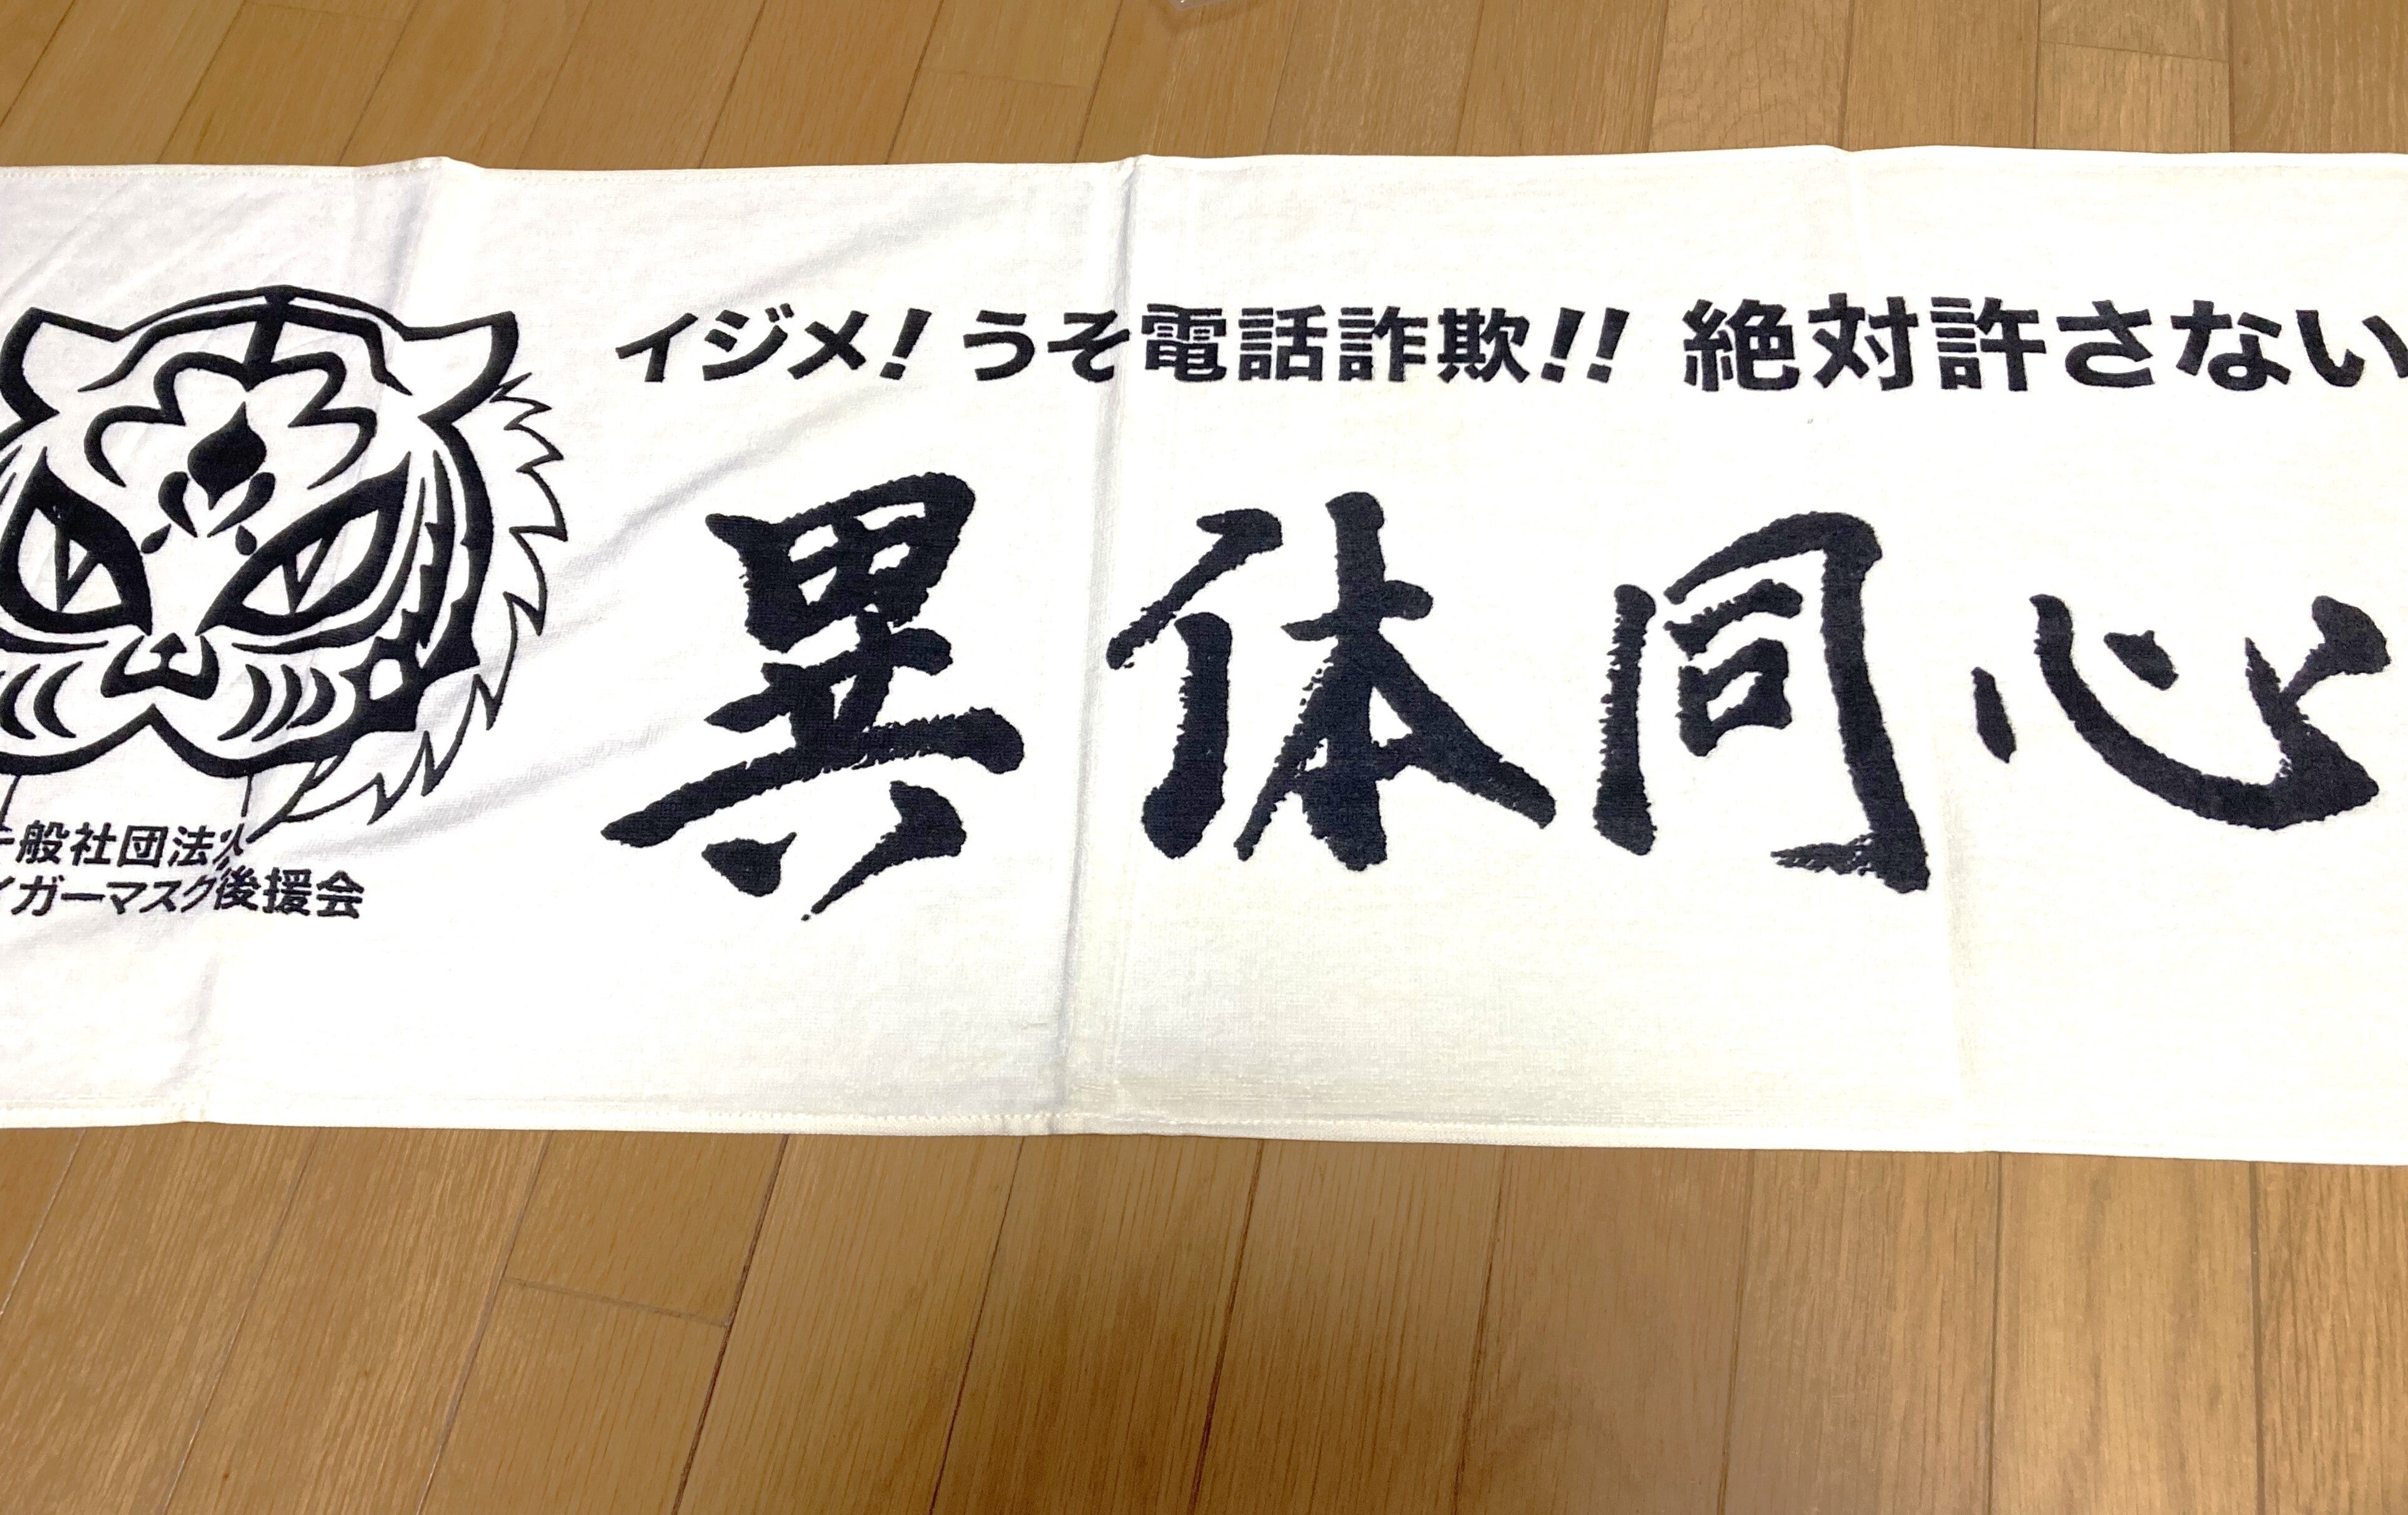 イジメ！うそ電話詐欺！！ 絶対許さない
異体同心
一般社団法人
イガーマスク後援会